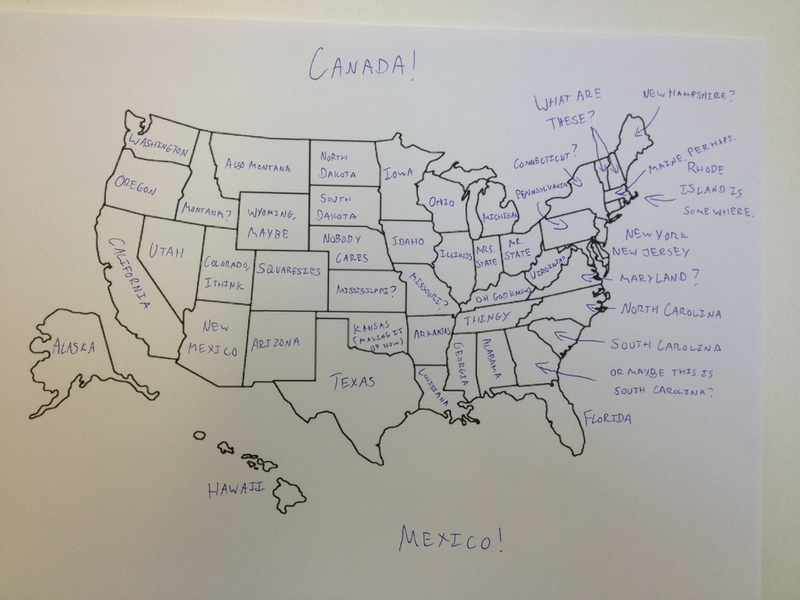 CANADA!
WHAT ARE
THESE?
NEW HAMPSHIRE?
WASHINGTON
ALSO MONTANA
NORTH
DAKOTA
IOWA
CONNECTICUT?
MAINE, PERHAPS.
RHODE
ISLAND IS
SOMEWHERE.
OREGON
MONTANA?
WYOMING,
MAYBE
SOUTH
DAKOTA
OHIO
MICHIGAN
PENNSYLVANIA
NEW YORK
NEW JERSEY
CALIFORNIA
UTAH
COLORADO,
I THINK
SQUARESIES
NOBODY
CARES
IDAHO
ILLINOIS
MRS.
STATE
MR.
STATE
VIRGINIA?
MARYLAND?
MISSISSIPPI?
MISSOURI?
OH GOD KNOWS
THINGY
NORTH CAROLINA
ALASKA
NEW
MEXICO
ARIZONA
KANSAS
(MAKING IT
UP NOW)
ARKANSAS
GEORGIA
ALABAMA
SOUTH CAROLINA
TEXAS
LOUISIANA
OR MAYBE THIS IS
SOUTH CAROLINA?
FLORIDA
HAWAII
MEXICO!